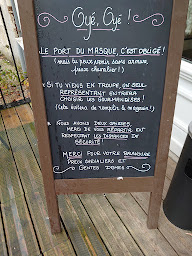 Oyé, Oyé !
LE PORT DU MASQUE, C'EST OBLIGÉ !
(mais tu peux venir sans armure,
preux chevalier !)
• SI TU VIENS EN TROUPE, UN SEUL
REPRÉSENTANT ENTRERA
CHOISIR LES GOURMANDISES !
(ça évitera de remplir la
• NOUS AVONS DEUX CAISSES,
MERCI DE VOUS RÉPARTIR EN
RESPECTANT LES DISTANCES DE
SÉCURITÉ !
MERCI POUR VOTRE BRAVOURE
PREUX CHEVALIERS ET
GENTES DAMES